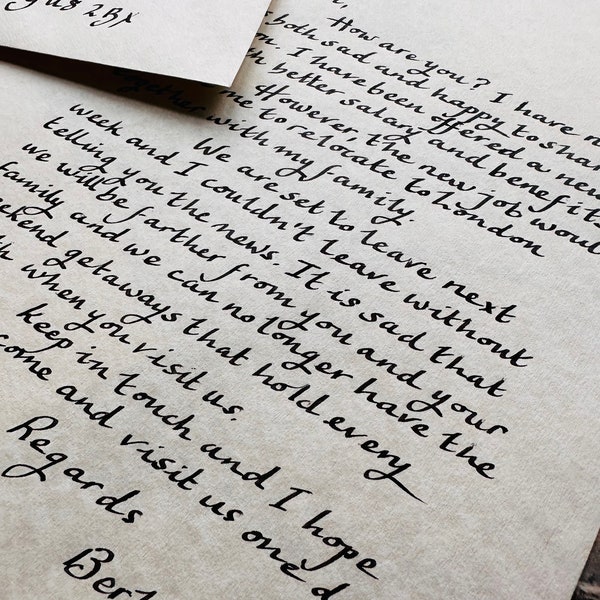 2BX
How are you? I have n
both sad and happy to shar
I have been offered a new
better salary and benefits
However, the new job woul
me to relocate to London
with my family.
We are set to leave next
week and I couldn't leave without
telling you the news. It is sad that
we will be farther from you and your
family and we can no longer have the
ekend getaways that hold every
when you visit us.
keep in touch and I hope
come and visit us one d
Regards
Ber